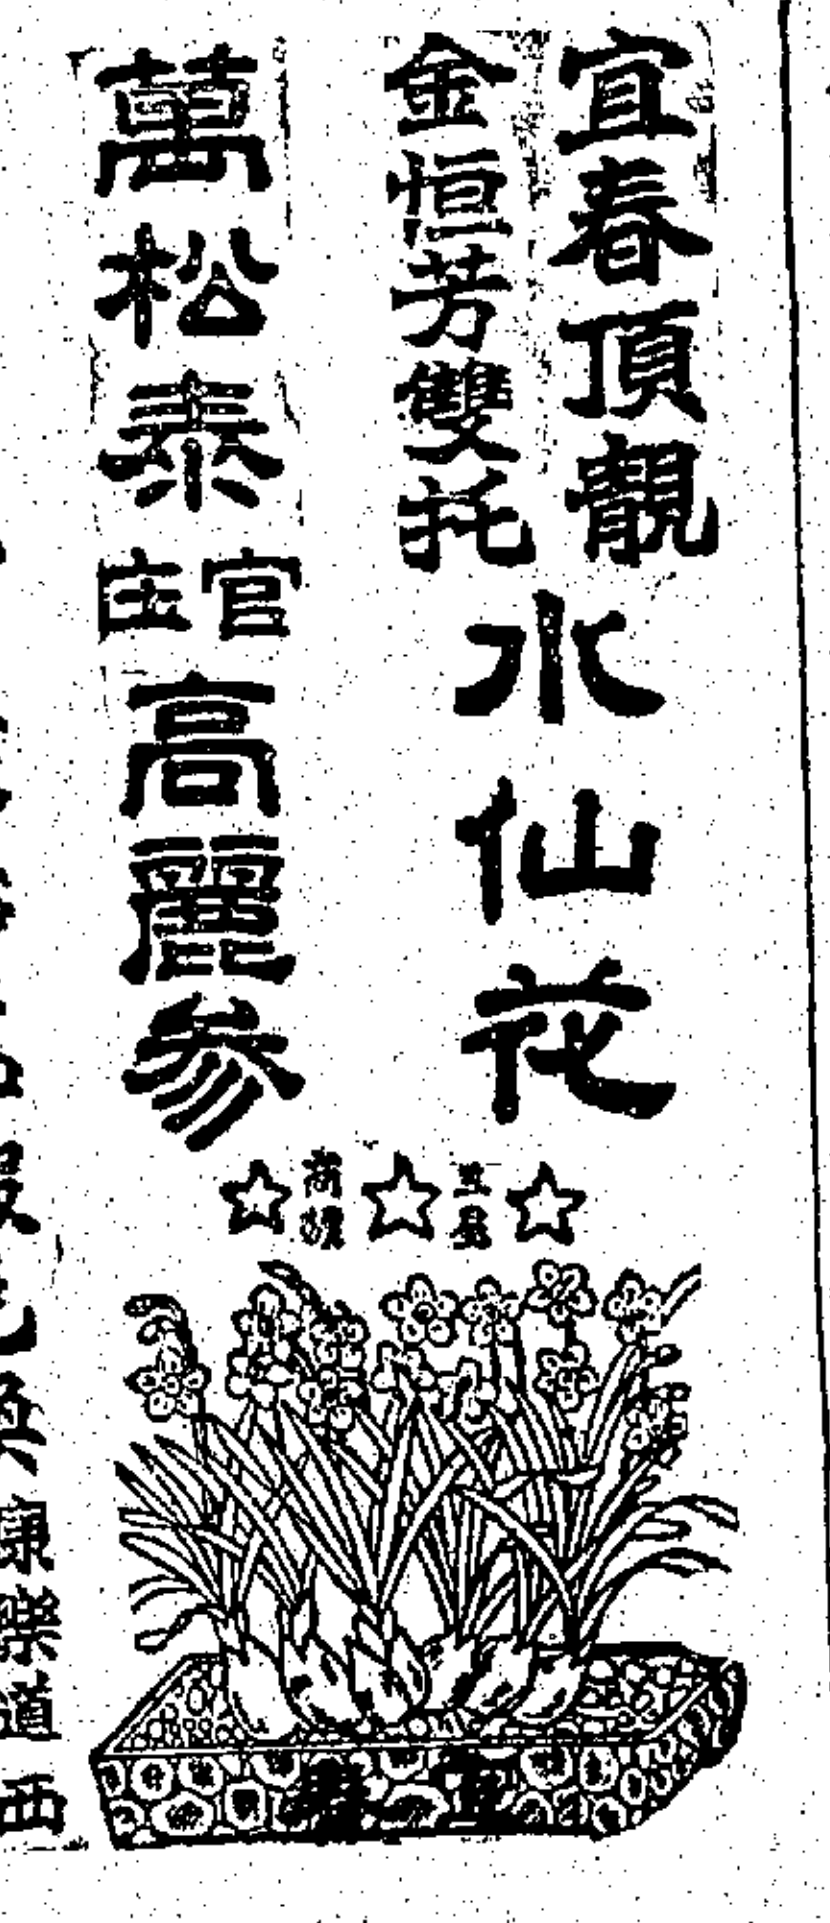 宜春頂靚
金恒芳雙托
水仙花
萬松泰
官庄
高麗參
康樂道西